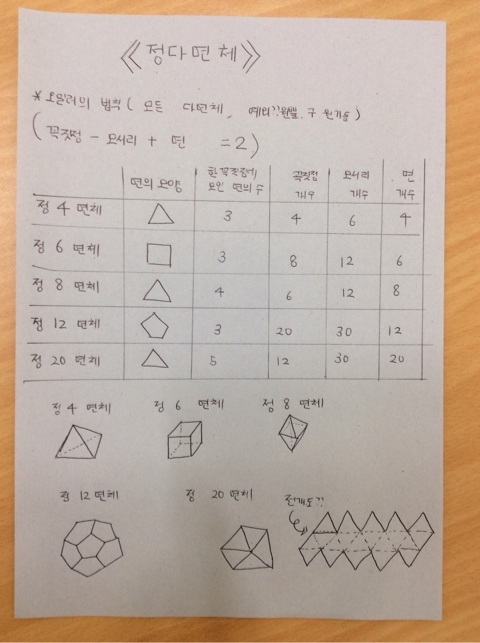 《정다면체》
*오일러의 법칙( 모든 다면체, 예외: 원뿔, 구 원기둥)
(꼭짓점 - 모서리 + 면 =2)
면의 모양 한 꼭짓점에 모인 면의 수 꼭짓점 개수 모서리 개수 면 개수
정 4 면체 3 4 6 4
정 6 면체 3 8 12 6
정 8 면체 4 6 12 8
정 12 면체 3 20 30 12
정 20 면체 5 12 30 20
정 4 면체 정 6 면체 정 8 면체
정 12 면체 정 20 면체 전개도